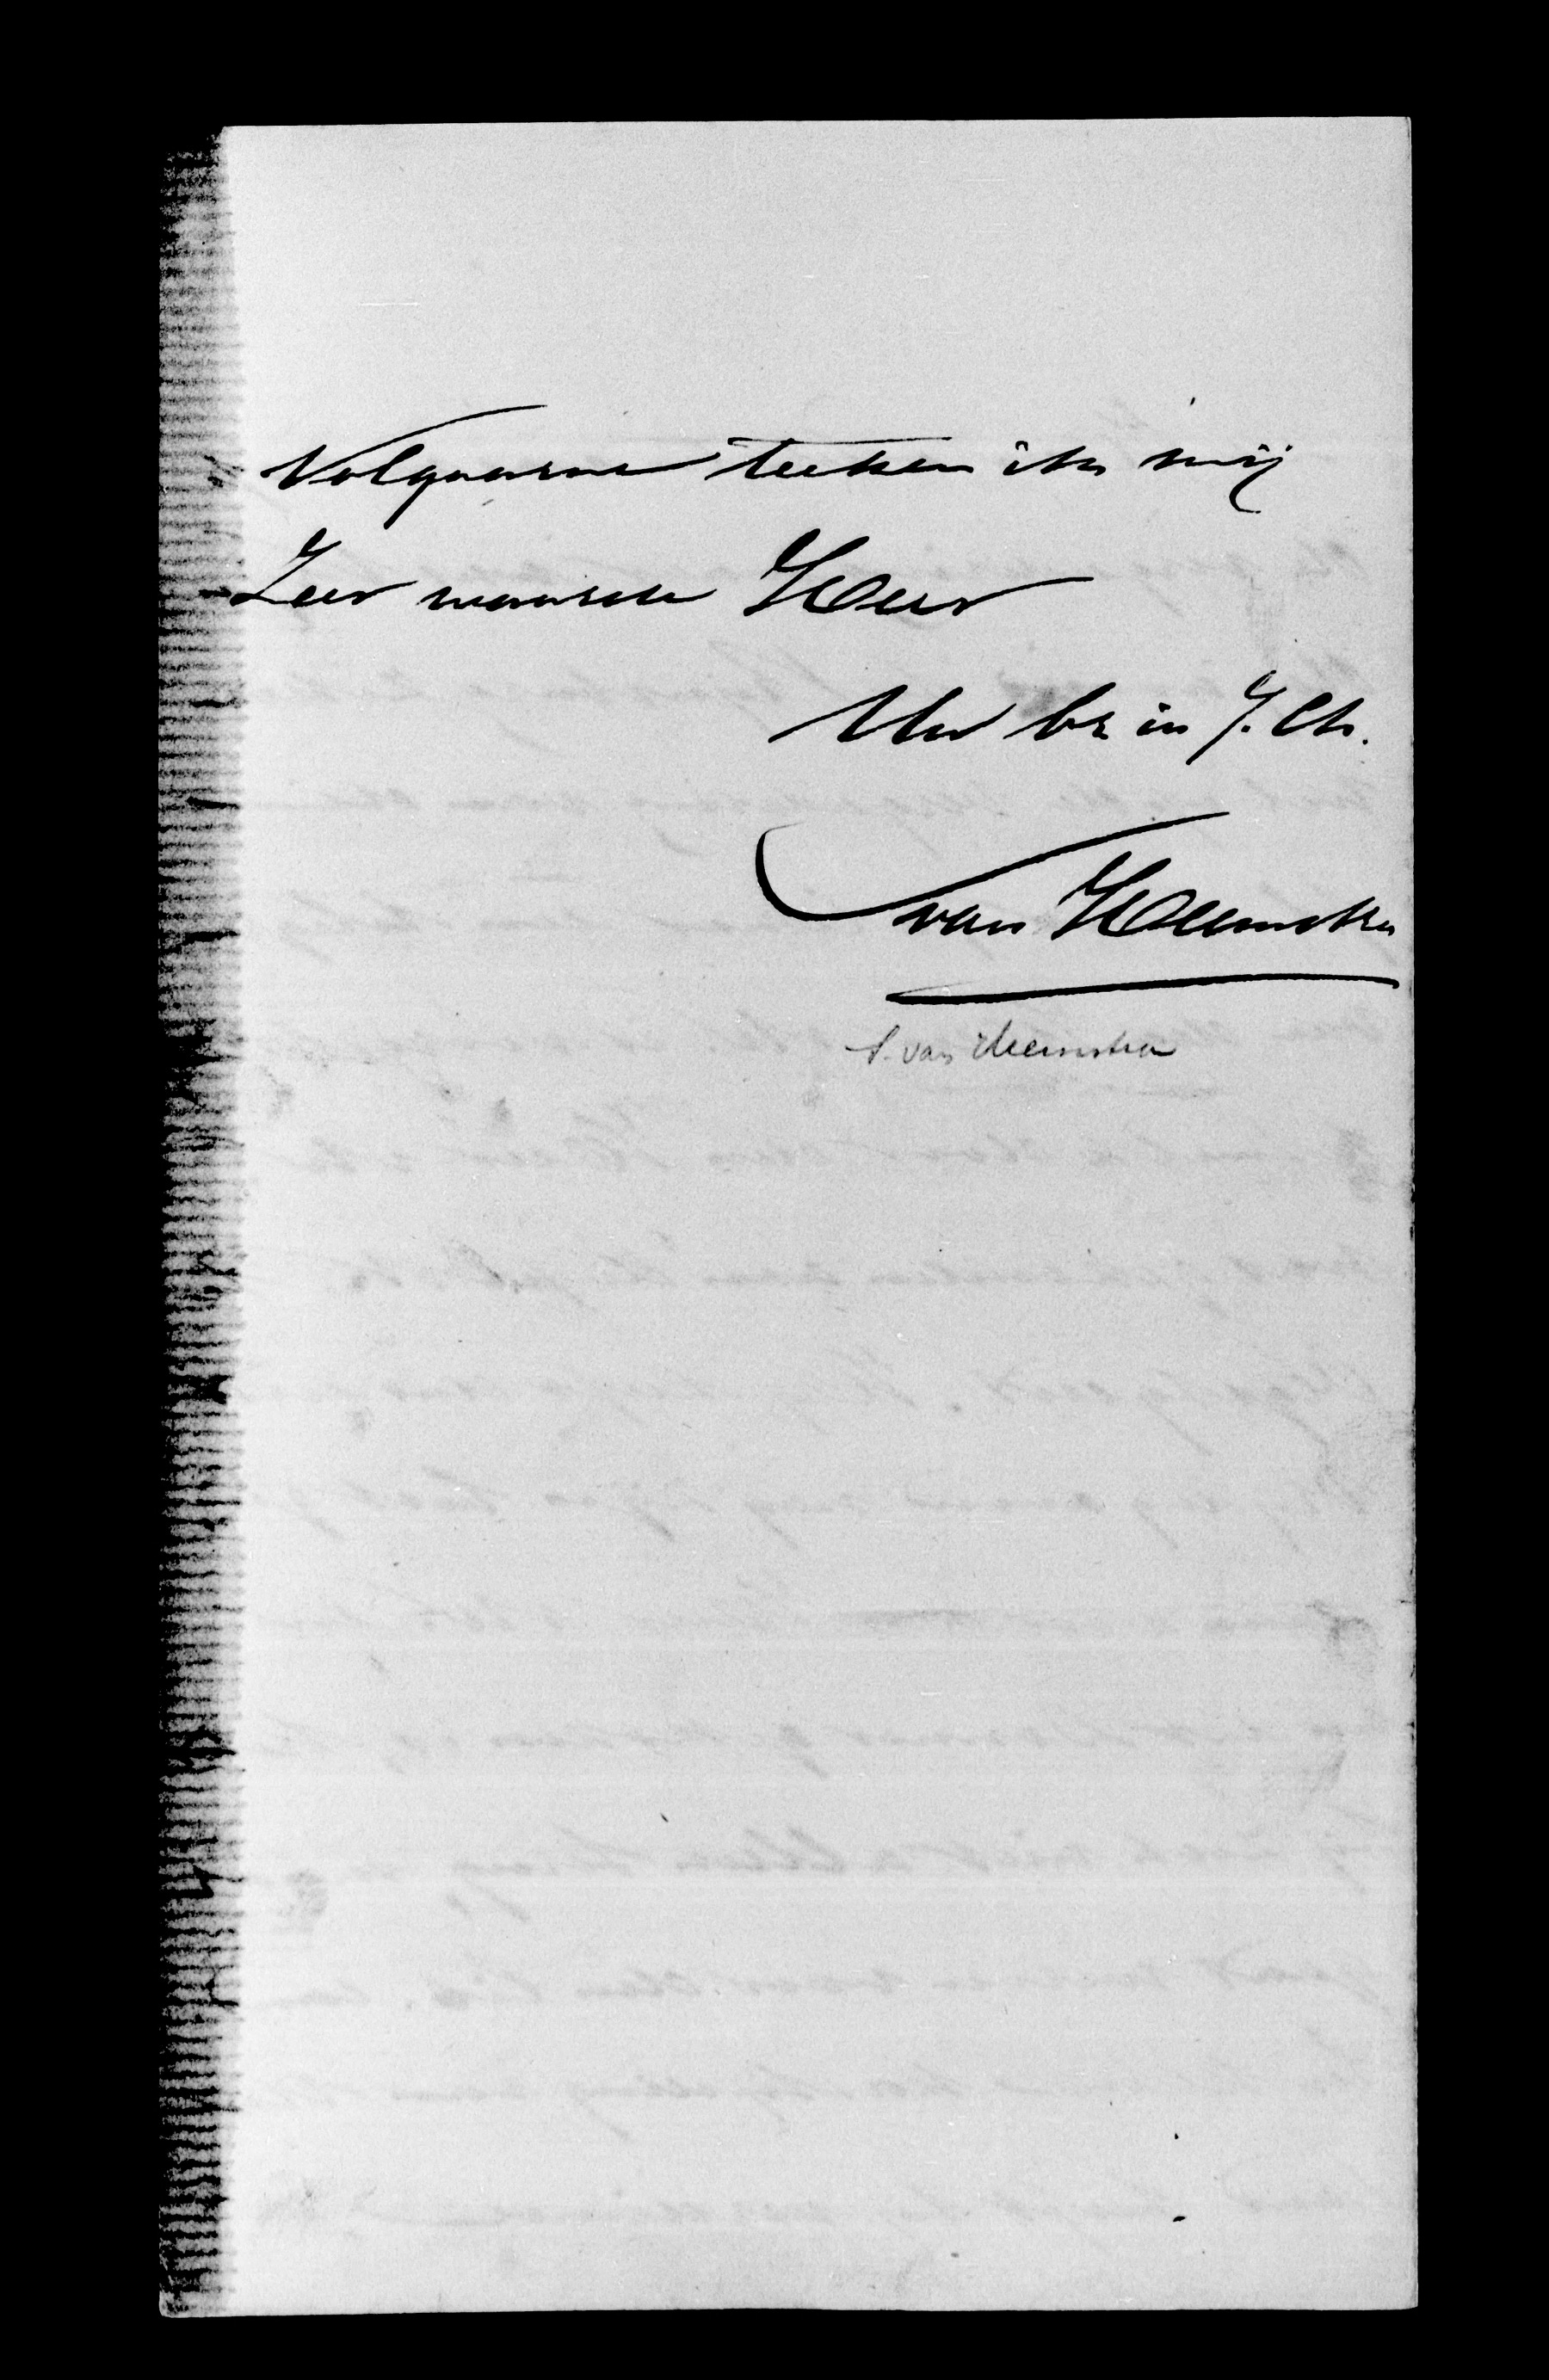 Volgaarne teeken ik mij
Zeer waarde Heer
Uw br. in J. Ch.
van Heemstra
S. van Heemstra